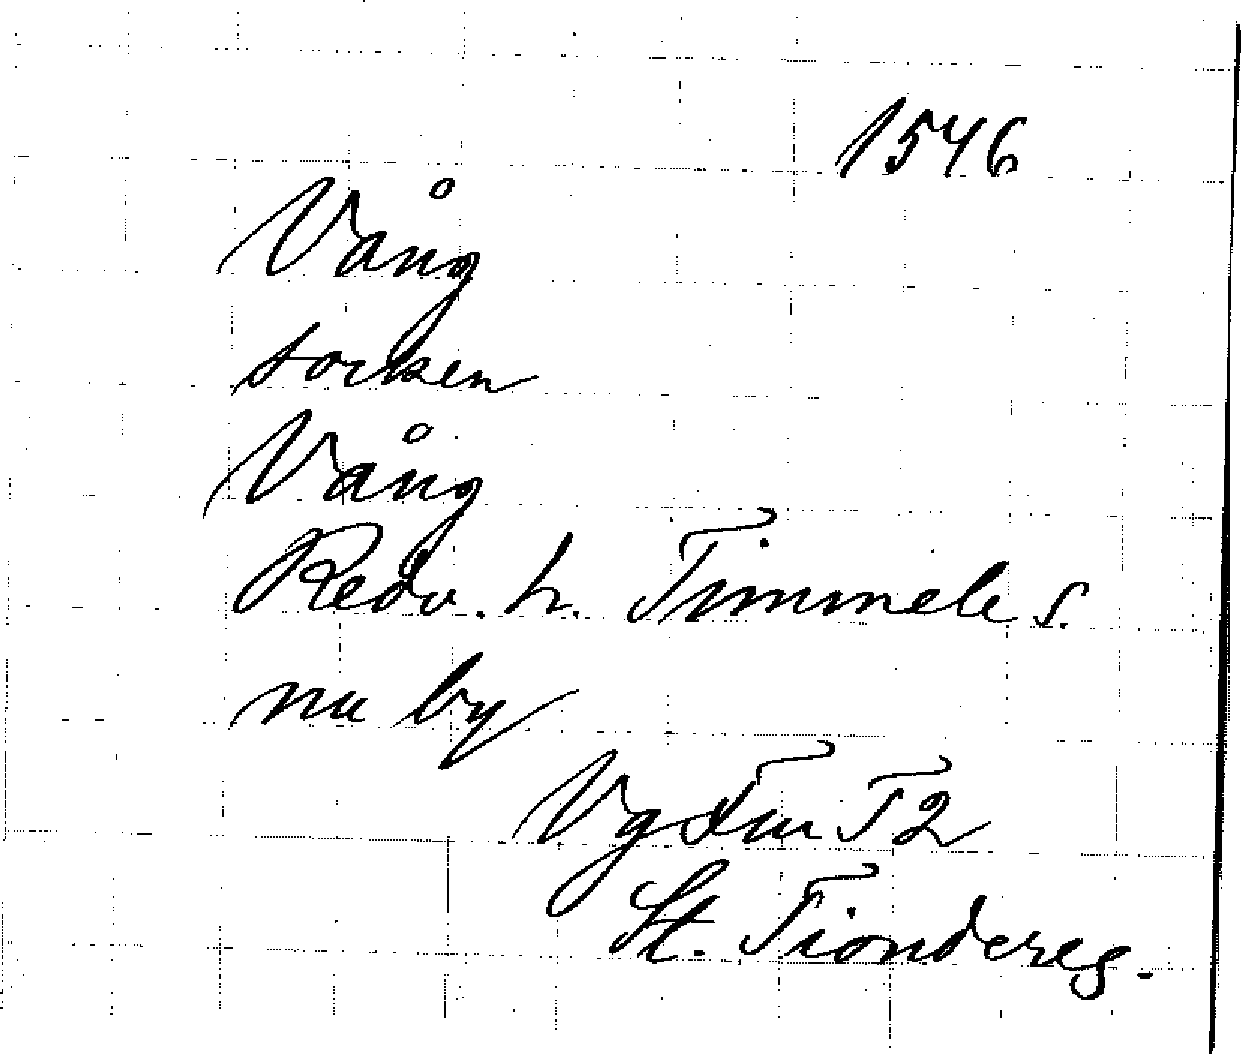 1546
Vång
socken
Vång
Redv. h. Timmele s.
nu by
Vg Fm T2
St. Tiondereg.